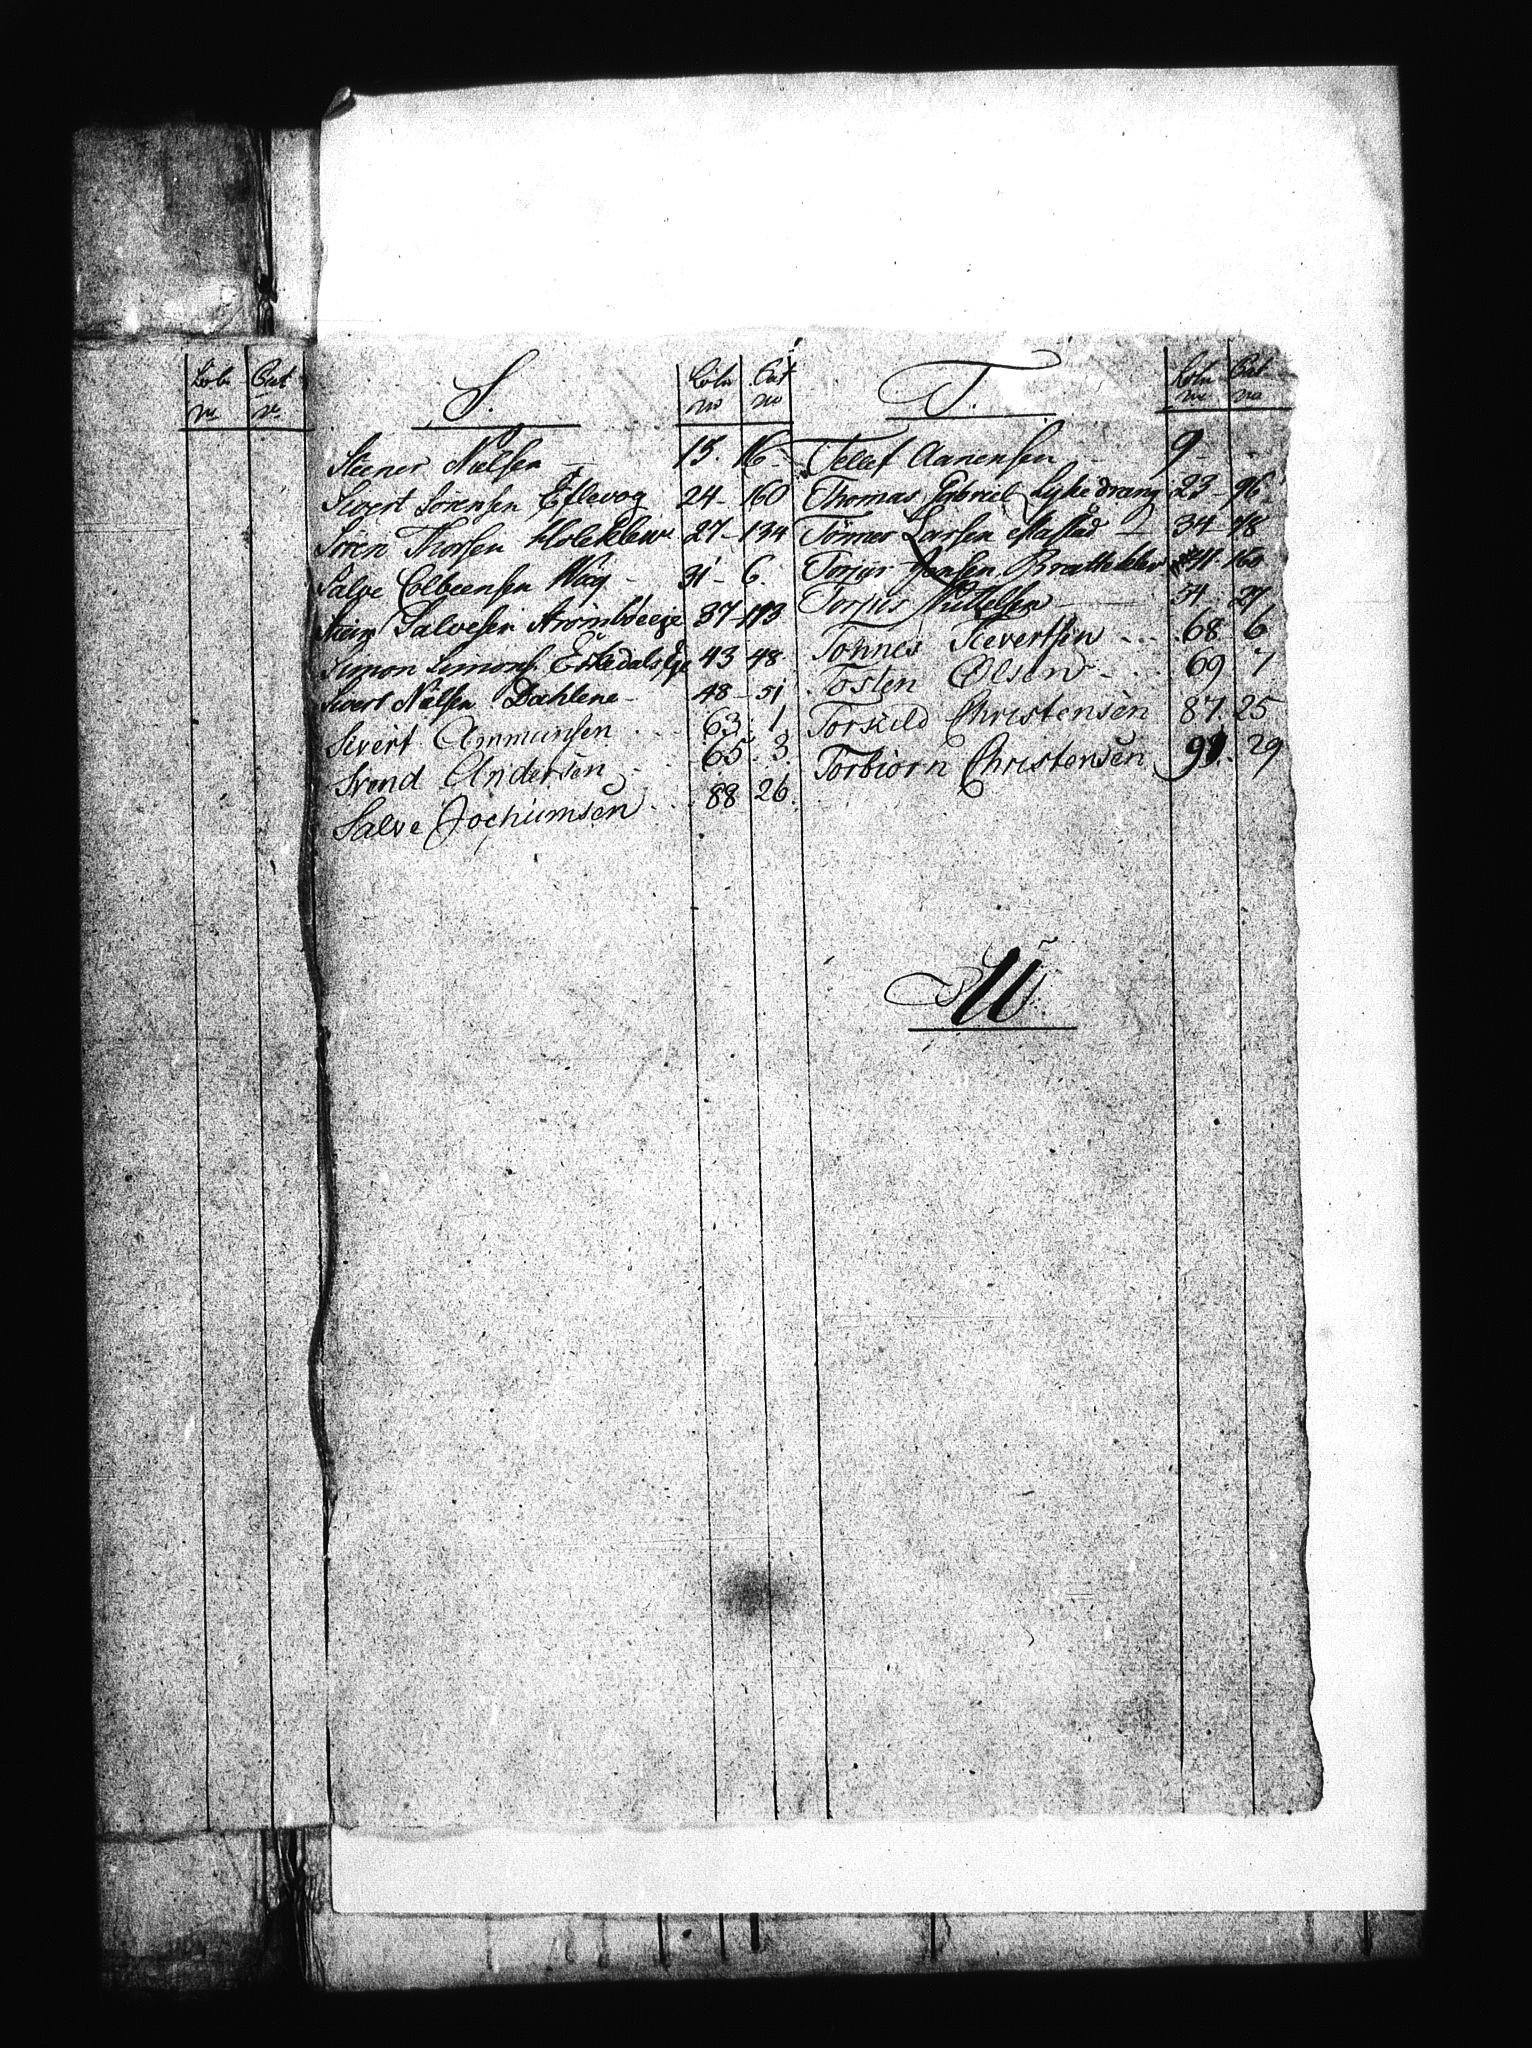 Löb. Cat
No No
S. Löb. Cat
No No
Steener Nielsen 15. 16
Sivert Sörensen Eftevog 24 - 160
Sören Thorsen Holeklew 27 - 134
Salve Colbeensen Waag 31 - 6
Stein Salvesen 37 - 113
Simon Simons. 43 48
Sivert Nielsen Dahlene 48 - 51
Sivert Ammunsen 63. 1
Svend Andersen 65. 3.
Salve Jochumsen 88 26.
T. Löb. Cat
No No
Tellef Aanensen 9 -
Thomas Gabriel Lykedrang 23 - 96
Tönnes Larsen 34 - 18
Torjus Jensen 160
Torjus Kittelsen 54 - 27
Tonnes Sievertsen 68. 6
Tosten Olsen 69 7
Torkild Christensen 87. 25
Torbiörn Christensen 91. 29
U.